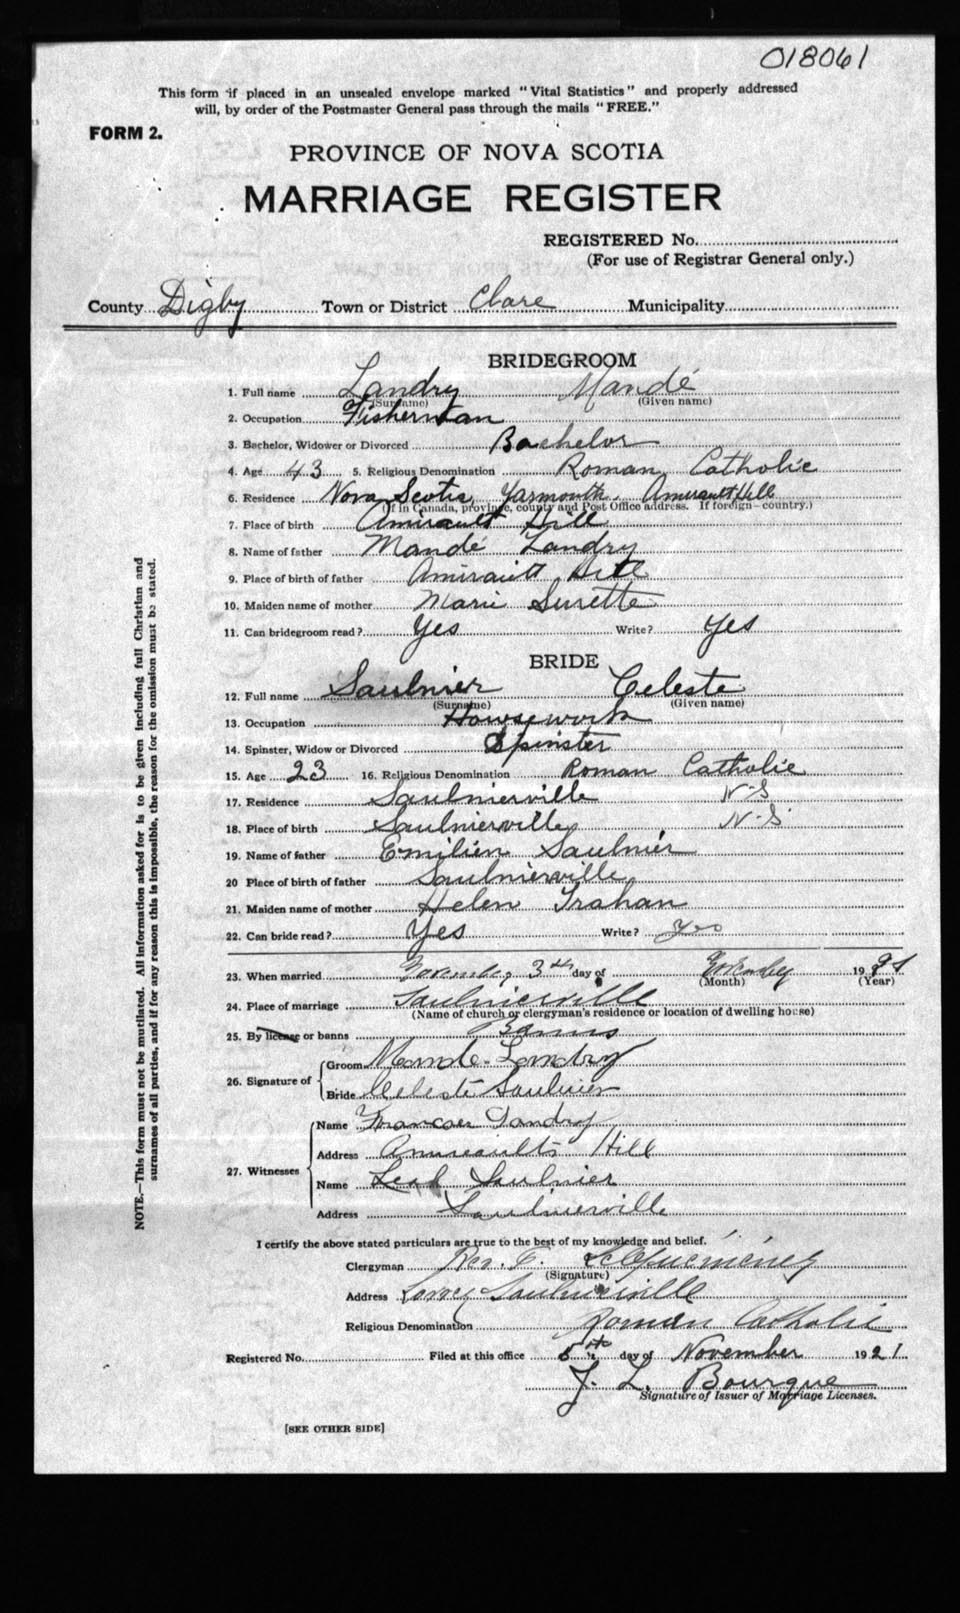 018061
This form if placed in an unsealed envelope marked "Vital Statistics" and properly addressed
will, by order of the Postmaster General pass through the mails "FREE."
FORM 2.
PROVINCE OF NOVA SCOTIA
MARRIAGE REGISTER
REGISTERED No.
(For use of Registrar General only.)
County Digby Town or District Clare Municipality
BRIDEGROOM
1. Full name Landry Mandé
(Surname) (Given name)
2. Occupation Fisherman
3. Bachelor, Widower or Divorced Bachelor
4. Age 43 5. Religious Denomination Roman Catholic
6. Residence Nova Scotia, Yarmouth, Amirault Hill
(If in Canada, province, county and Post Office address. If foreign—country.)
7. Place of birth Amirault Hill
8. Name of father Mandé Landry
9. Place of birth of father Amirault Hill
10. Maiden name of mother Marie Surette
11. Can bridegroom read? Yes Write? Yes
BRIDE
12. Full name Saulnier Celeste
(Surname) (Given name)
13. Occupation Housework
14. Spinster, Widow or Divorced Spinster
15. Age 23 16. Religious Denomination Roman Catholic
17. Residence Saulnierville N-S
18. Place of birth Saulnierville N-S
19. Name of father Emilien Saulnier
20 Place of birth of father Saulnierville
21. Maiden name of mother Helen Trahan
22. Can bride read? Yes Write? Yes
23. When married November 3th day of 1921
(Month) (Year)
24. Place of marriage Saulnierville
(Name of church or clergyman's residence or location of dwelling house)
25. By license or banns Banns
26. Signature of Groom Mande Landry
Bride Celeste Saulnier
27. Witnesses Name Landry
Address Amireaults Hill
Name Leah Saulnier
Address Saulnierville
I certify the above stated particulars are true to the best of my knowledge and belief.
Clergyman Rev.
(Signature)
Address Saulnierville
Religious Denomination Roman Catholic
Registered No. Filed at this office 5th day of November 1921.
J. L. Bourque
Signature of Issuer of Marriage Licenses.
[SEE OTHER SIDE]
NOTE.—This form must not be mutilated. All information asked for is to be given including full Christian and
surnames of all parties, and if for any reason this is impossible, the reason for the omission must be stated.